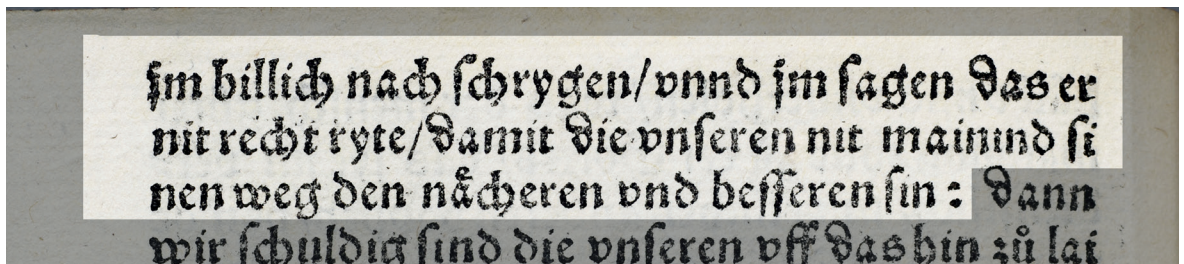 jm billich nach ſchrygen/vnnd jm ſagen das er
nit recht ryte/damit die vnſeren nit mainind ſi
nen weg den nåcheren vnd beſſeren ſin: dann
wir ſchuldig ſind die vnſeren vff das hin zů lai